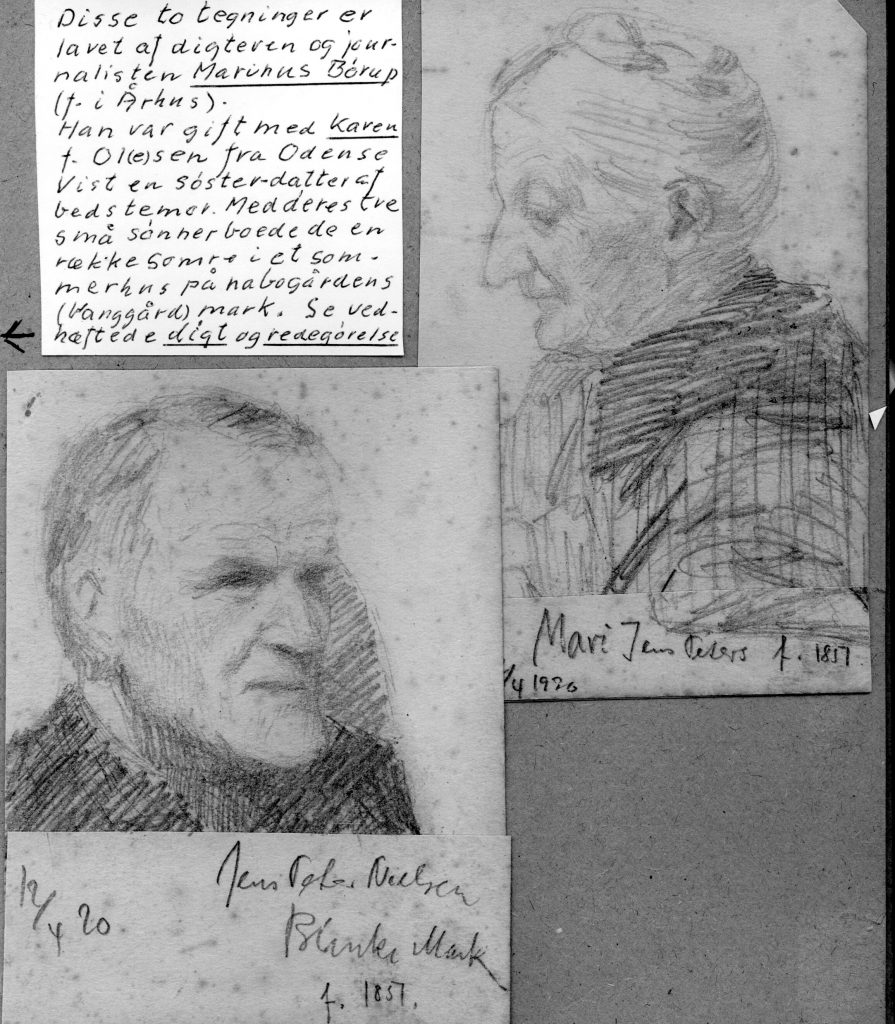 Disse to tegninger er
lavet af digteren og jour-
nalisten Marinus Börup
(f. i Århus).
Han var gift med Karen
f. Ol(e)sen fra Odense
Vist en söster-datter af
bedstemor. Med deres tre
små sönner boede de en
række somre i et som-
merhus på nabogårdens
(Vanggård) mark. Se ved-
hæftede digt og redegörelse
Mari Jens Peters f. 1857
/4 1920
Jens Peter Nielsen
12/4 20
Blanke Mark
f. 1857.